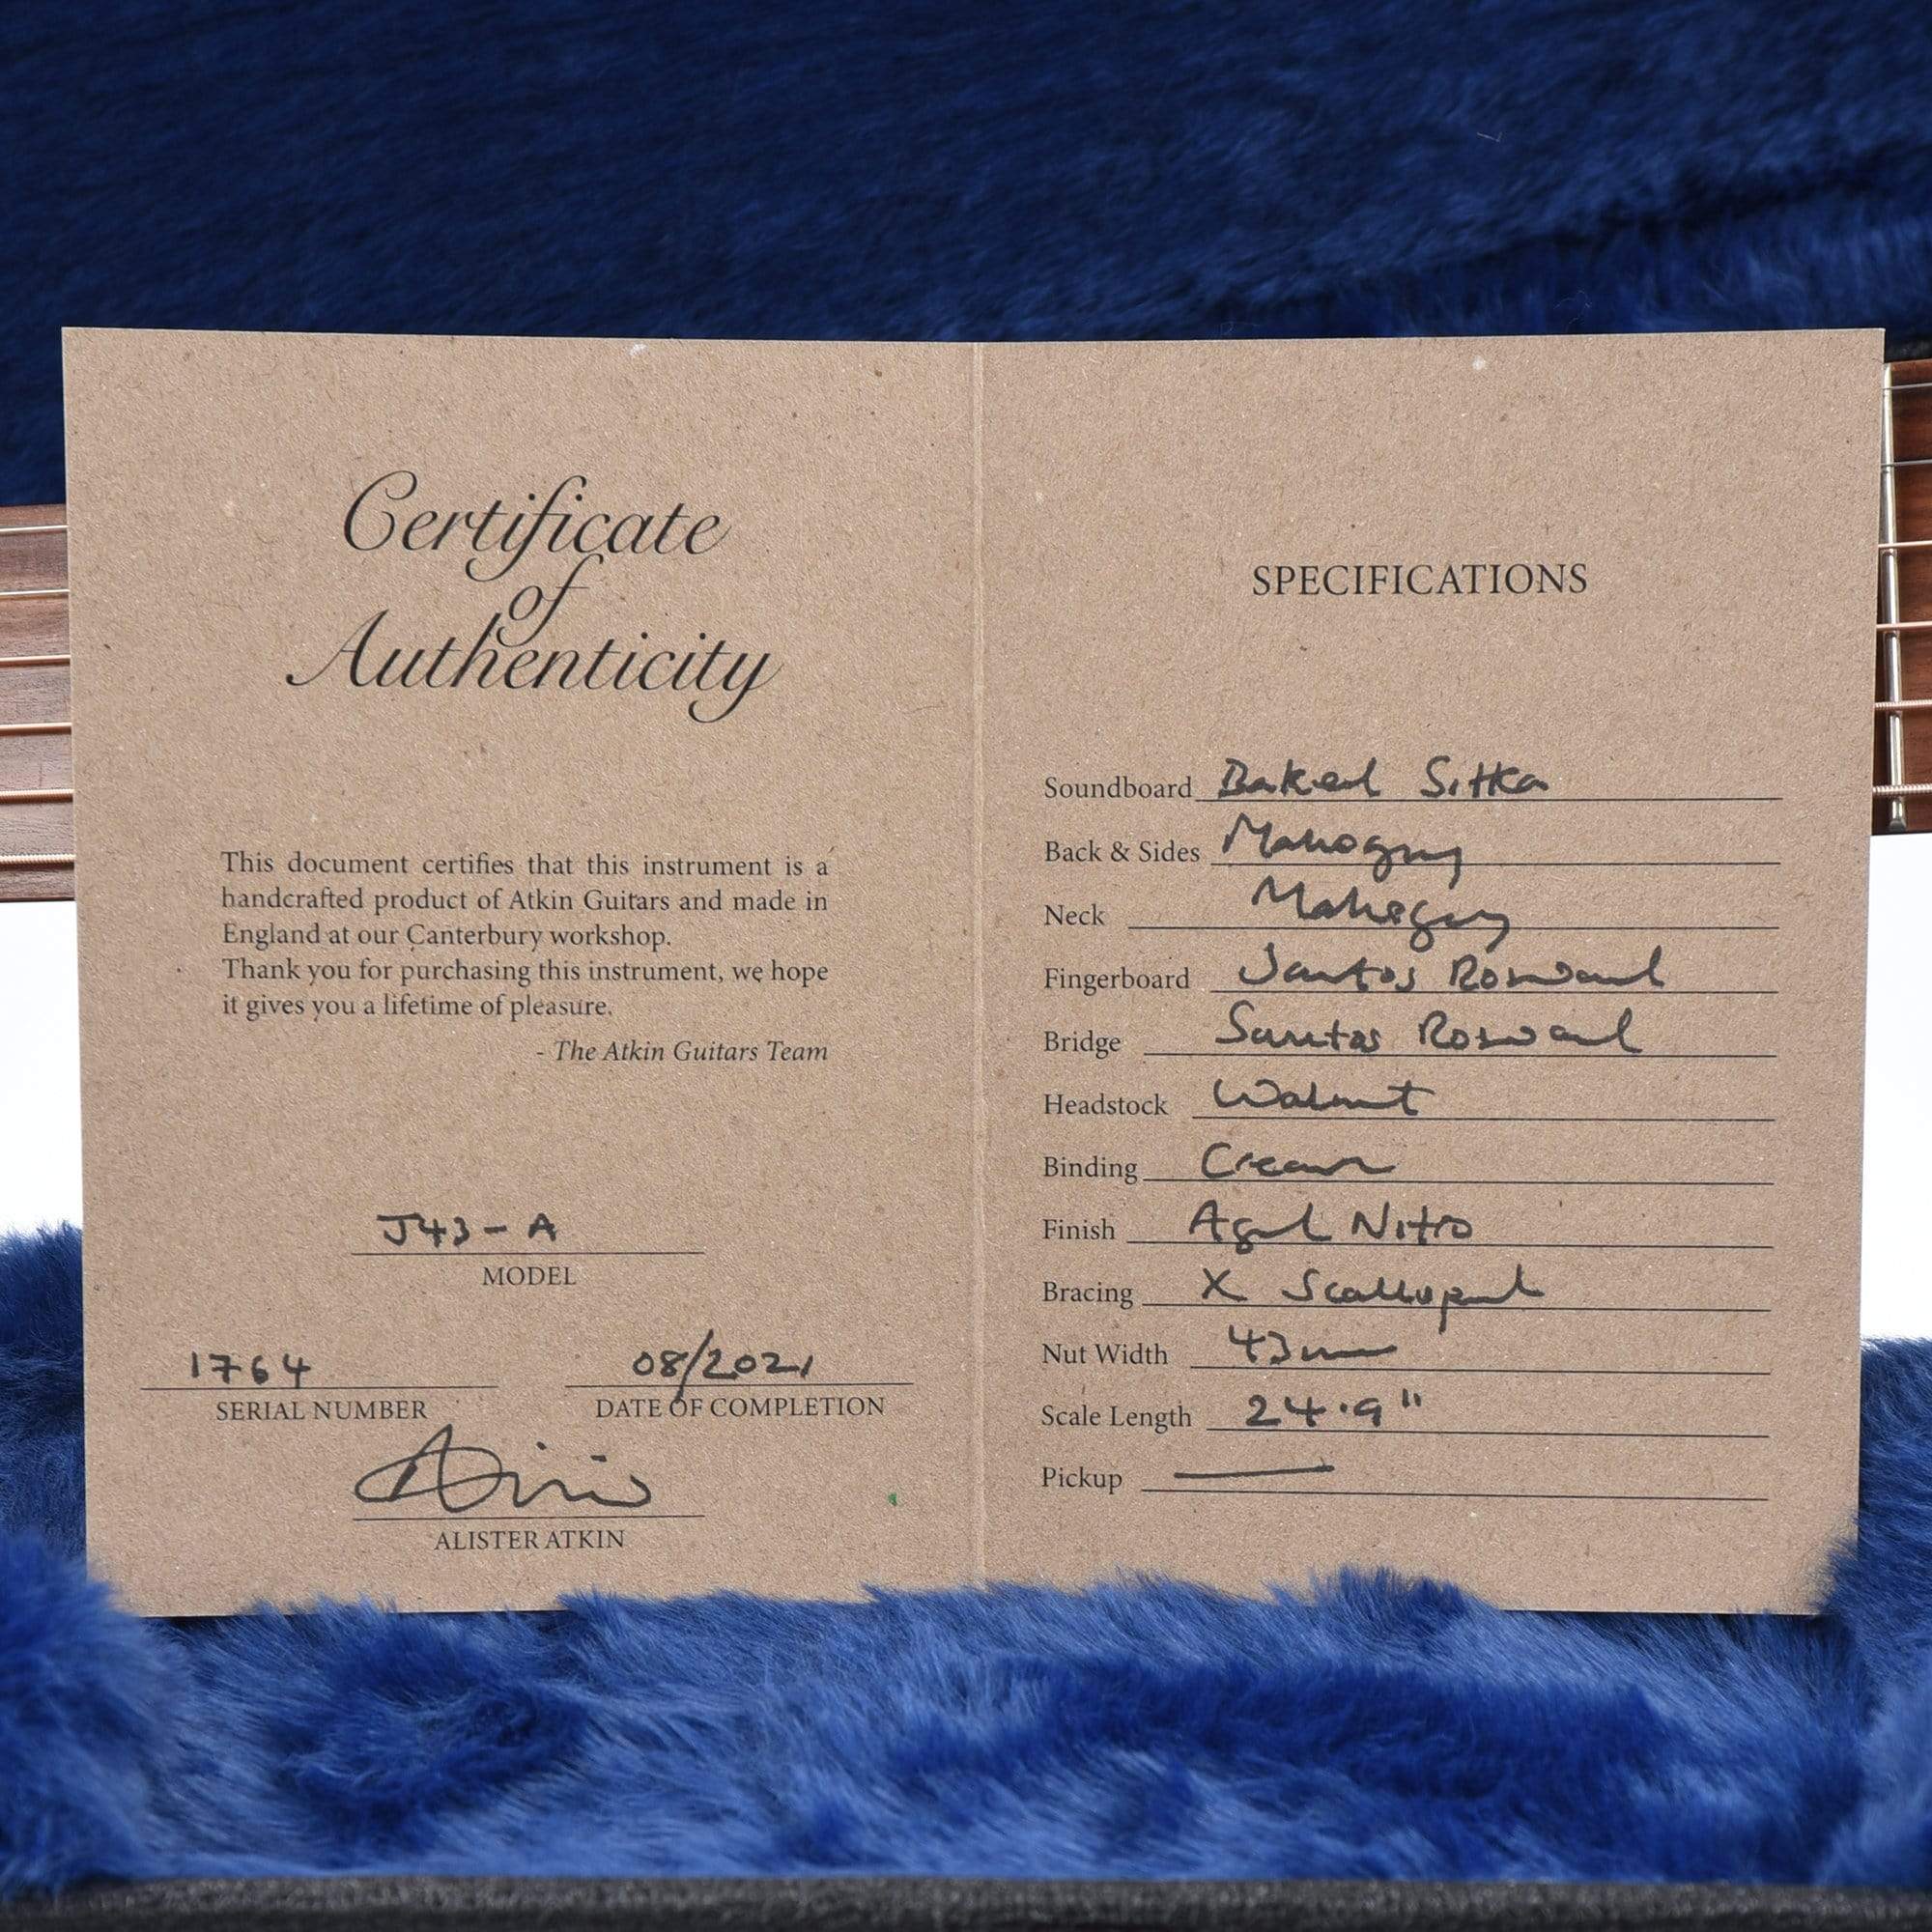 Certificate
of
Authenticity
This document certifies that this instrument is a
handcrafted product of Atkin Guitars and made in
England at our Canterbury workshop.
Thank you for purchasing this instrument, we hope
it gives you a lifetime of pleasure.
- The Atkin Guitars Team
J43-A
MODEL
1764
SERIAL NUMBER
08/2021
DATE OF COMPLETION
ALISTER ATKIN
SPECIFICATIONS
Soundboard Baked Sitka
Back & Sides Mahogany
Neck Mahogany
Fingerboard Santos Rosewood
Bridge Santos Rosewood
Headstock Walnut
Binding Cream
Finish Aged Nitro
Bracing X Scalloped
Nut Width 43mm
Scale Length 24.9"
Pickup —